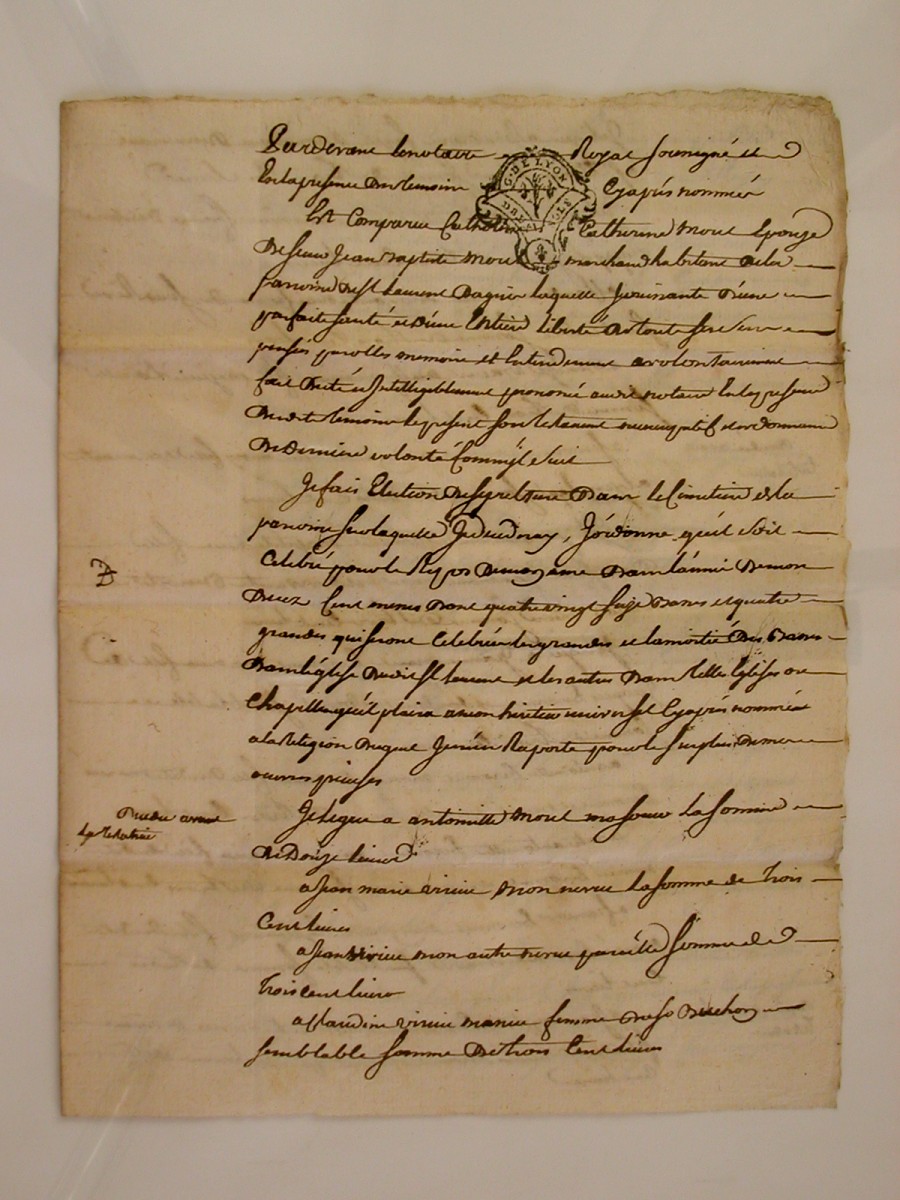 Pardevant le notaire Royal soussigné et
En la presence des temoins Cyaprés nommés
G. DE LYON
Est Comparue Catherine Morel Epouze
De sieur Jean Baptiste Morel marchand habitant de la
parroisse de St Laurent Dagnier laquelle Jouissante D'une
parfaite santé et D'une Entiere liberté de toutes ses
pensés parolles memoire et Entendement a volontairement
fait Dicté et Intelligiblement prononcé audit notaire En la presence
Desdits temoins le present son testament nuncupatif et ordonnance
De Derniere volonté Comm'il suit
Je fais Election De sepulture Dans le Cimetiere de la
parroisse sur laquelle Je decederay, J'ordonne qu'il soit
Celebré pour le Repos De mon ame Dans l'année De mon
Decez Cent messes Dont quatre vingt seize basses et quatre
grandes qui seront Celebrées les grandes et la moitié Des basses
Dans l'église Dudit St Laurent et les autres Dans telles Eglises ou
Chapelles qu'il plaira a mon heritier universel Cyaprés nommé
a la Religion Duquel Je m'en Raporte pour le surplus De mes
œuvres pieuses
Je legue a antoinette Morel ma sœur La somme
De Douze livres
a Jean marie virieu mon neveu La somme de trois
Cent livres
a Jean virieu mon autre neveu pareille somme de
trois cent livres
a Claudine virieu ma niece femme de Sr Duchon
semblable somme De trois Cent livres